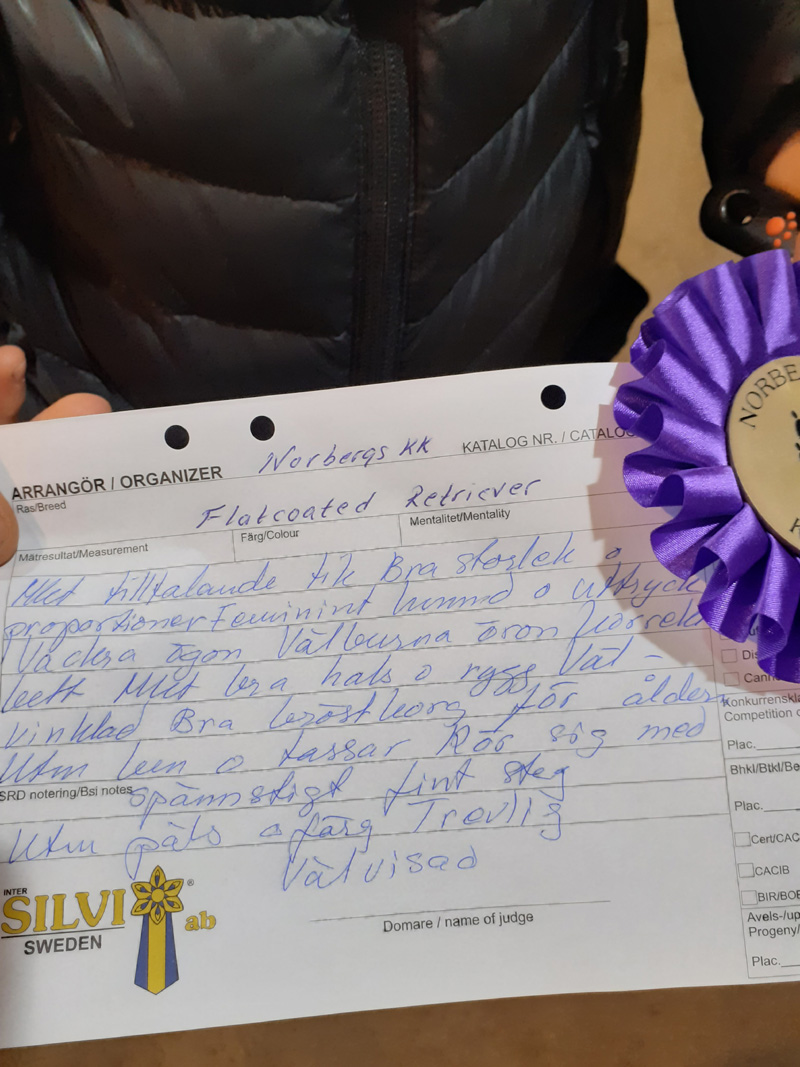 NORBE
Norbergs KK
KATALOG NR. / CATALO
ARRANGÖR / ORGANIZER
Ras/Breed
Flatcoated Retriever
Mätresultat/Measurement
Färg/Colour
Mentalitet/Mentality
Mkt tilltalande tik Bra storlek o
proportioner Feminint huvud o uttryck
Vackra ögon Välburna öron Korrekt
bett Mkt bra hals o rygg Väl-
vinklad Bra bröstkorg för ålder
Utm ben o tassar Rör sig med
SRD notering/Bsi notes
spännstigt fint steg
Utm päls o färg Trevlig
Välvisad
Domare / name of judge
INTER
SILVI ®
ab
SWEDEN
Dis
Cann
Konkurrenskla
Competition c
Plac.
Bhkl/Btkl/Be
Plac.
Cert/CAC
CACIB
BIR/BOB
Avels-/up
Progeny/
Plac.